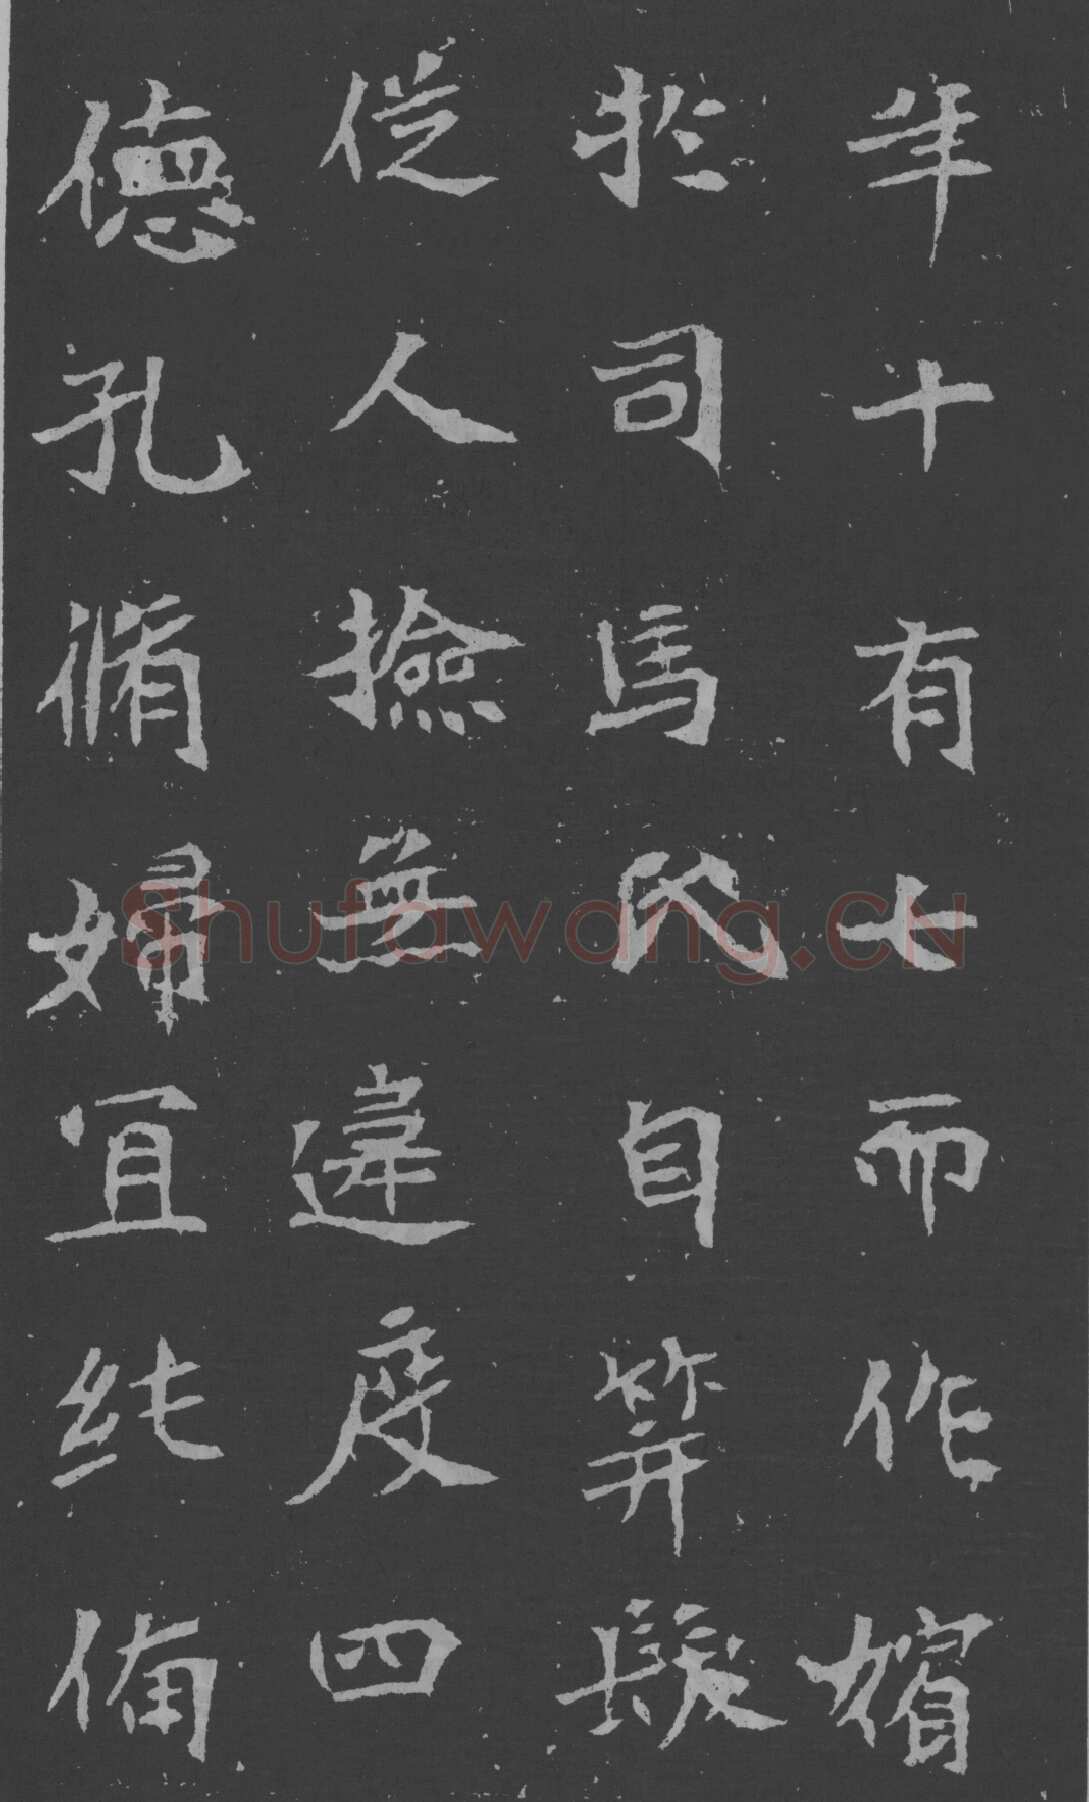 年十有七而作嬪
於司馬氏自笄髮
從人撿無違度四
德孔脩婦宜純備
Shufawang.CN